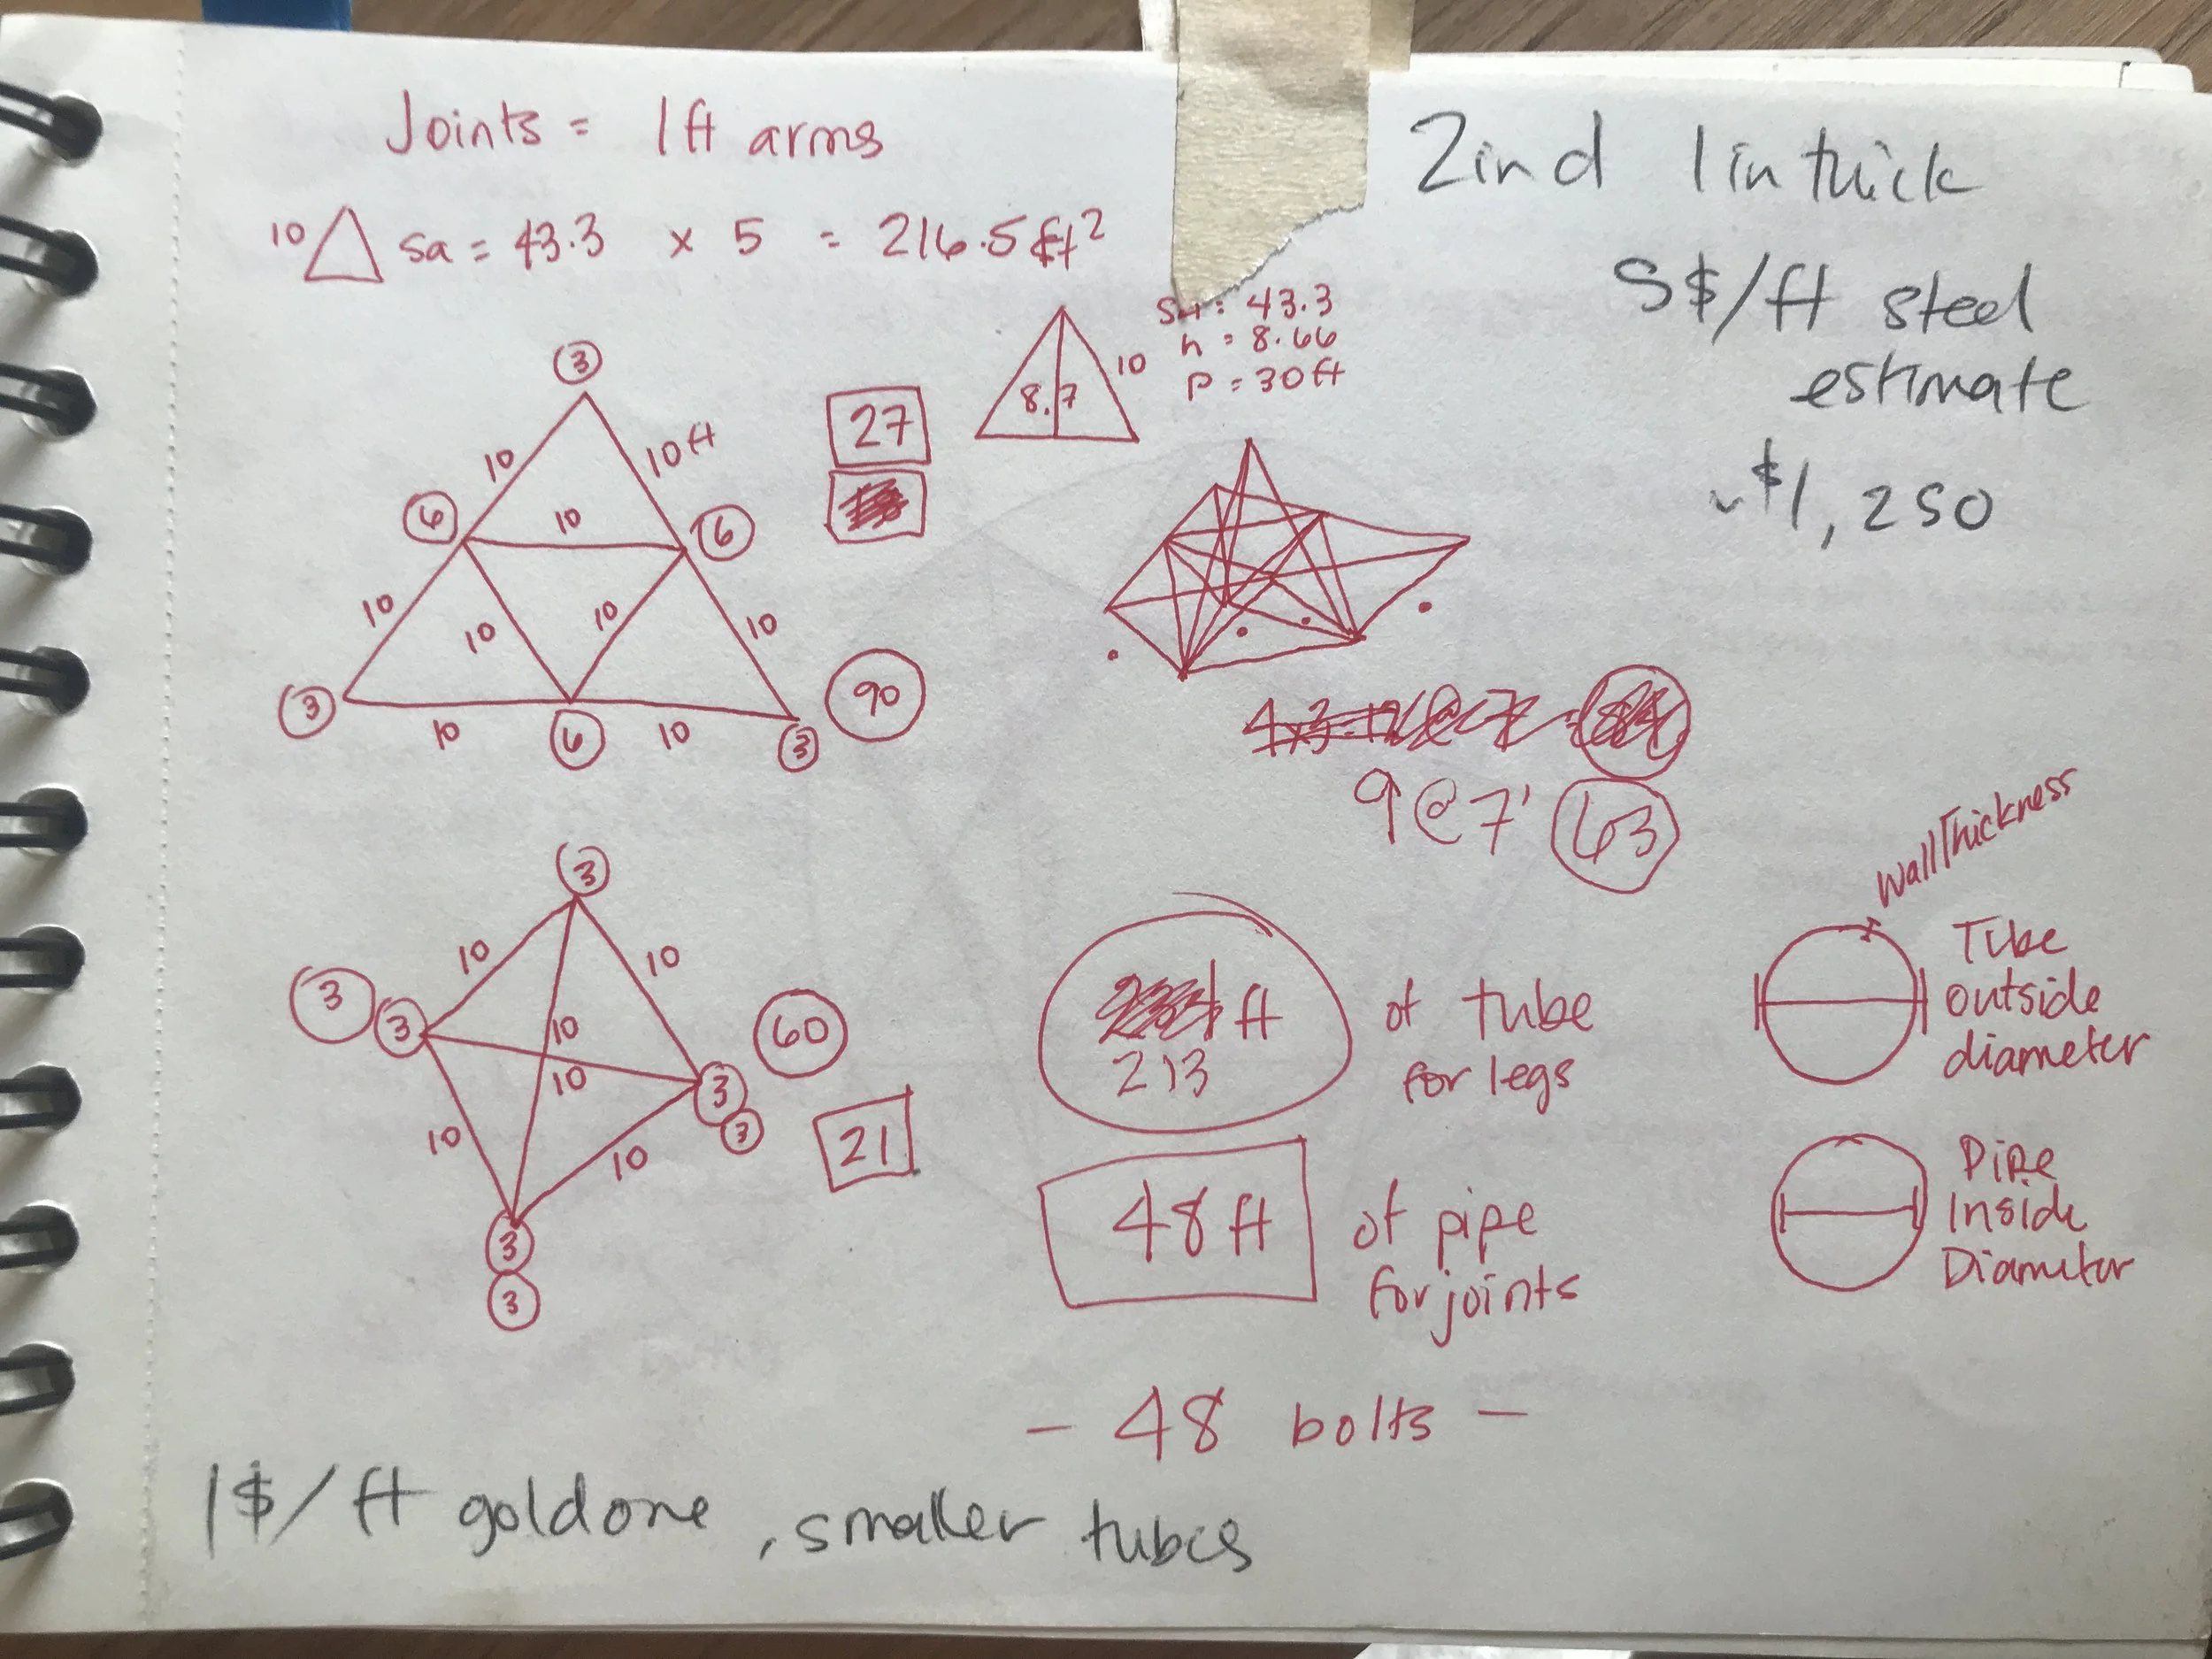 Joints = 1ft arms
10 sa = 43.3 x 5 = 216.5 ft²
2ind 1in thick
5$/ft steel
estimate
~$1,250
sa = 43.3
h = 8.66
p = 30ft
10
8.7
27
3
10
10ft
6
10
6
10
10
10
10
3
10
6
10
3
90
9@7' 63
3
10
10
3
3
10
10
60
3
3
10
10
21
3
3
ft
213
of tube
for legs
48ft
of pipe
for joints
- 48 bolts -
Wall Thickness
Tube
outside
diameter
Pipe
Inside
Diameter
1$/ft gold one, smaller tubes